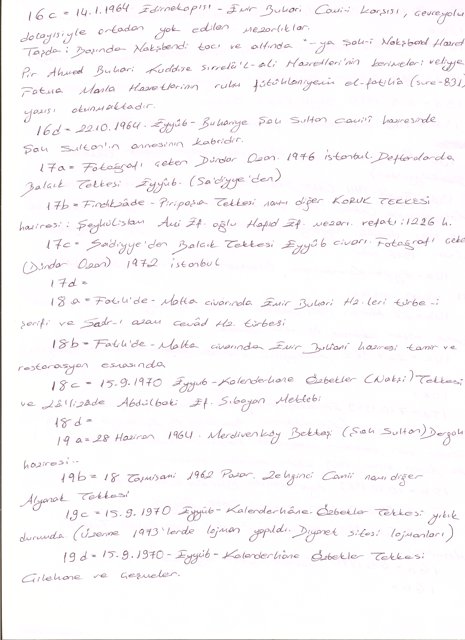 16c = 14.1.1964 Edirnekapısı - Emir Buhari Camii karşısı, çevreyolu
dolayısiyle ortadan yok edilen mezarlıklar.
Taşda: Başında Nakşibendi tacı ve altında "-ya Şah-ı Nakşbend Hazret
Pir Ahmed Buhari Kuddise sırrehü'l-ali Hazretleri'nin kerimeleri veliyye
Fatma Molla Hazretlerinin ruhu fütühlarıyçün el-fatiha (sure-831)
yazısı okunmaktadır.
16d = 22.10.1964. Eyyüb - Buhariye Şah Sultan camii haziresinde
Şah Sultan'ın annesinin kabridir.
17a = Fotoğrafı çeken Dündar Ozan. 1976 istanbul. Defterdarda
Balcık Tekkesi Eyyüb. (Sa'diyye'den)
17b = Fındıkzâde - Piripaşa Tekkesi namı diğer KORUK TEKKESİ
haziresi: Şeyhülislam Arif Ef. oğlu Hafid Ef. mezarı. vefatı: 1226 h.
17c = Sa'diyye'den Balcık Tekkesi Eyyüb civarı Fotoğrafı çeke
(Dündar Ozan) 1972 istanbul
17d =
18a = Fatih'de - Malta civarında Emir Buhari Hz.leri türbe-i
şerifi ve Sadr-ı azam cevâd Hz. türbesi
18b = Fatih'de - Malta civarında Emir Buhari haziresi tamir ve
restorasyon esnasında
18c = 15.9.1970 Eyyüb - Kalenderhane Özbekler (Nakşi) Tekkesi
ve Lâ'lizade Abdülbaki Ef. Sıbayan Mektebi
18d =
19a = 28 Haziran 1964. Merdivenköy Bektaşi (Şah Sultan) Dergah
haziresi..
19b = 18 Teşrisani 1962 Pazar. Zehgirci Camii namı diğer
Alyanak Tekkesi
19c = 15.9.1970 Eyyüb - Kalenderhâne Özbekler Tekkesi yıkık
durumda (Üzerine 1973'lerde lojman yapıldı. Diyanet sitesi lojmanları)
19d = 15.9.1970 - Eyyüb - Kalenderhâne Özbekler Tekkesi
Çilehane ve çeşmeler.